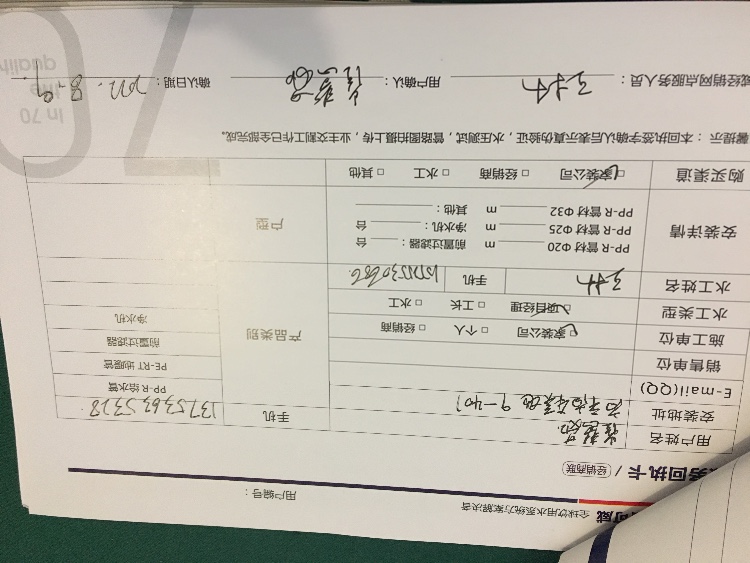 可威 全球饮用水系统方案解决者
务回执卡 / 经销商联
用户编号：
用户姓名
手机 13753635328
安装地址 9-401
E-mail(QQ)
销售单位
施工单位 ☑家装公司 □个人 □经销商
水工类型 ☑项目经理 □工长 □水工
水工姓名 手机
产品类别
PP-R 给水管
PE-RT 地暖管
前置过滤器
净水机
安装详情
PP-R 管材 Φ20 m 前置过滤器： 台
PP-R 管材 Φ25 m 净水机： 台
PP-R 管材 Φ32 m 其他：
户型
购买渠道 ☑家装公司 □经销商 □水工 □其他
馨提示：本回执签字确认后表示真伪验证，水压测试，管路图拍摄上传，业主交割工作已全部完成。
或经销网点服务人员： 用户确认： 确认日期：2022.8.9.
70
In 70
the
qualit